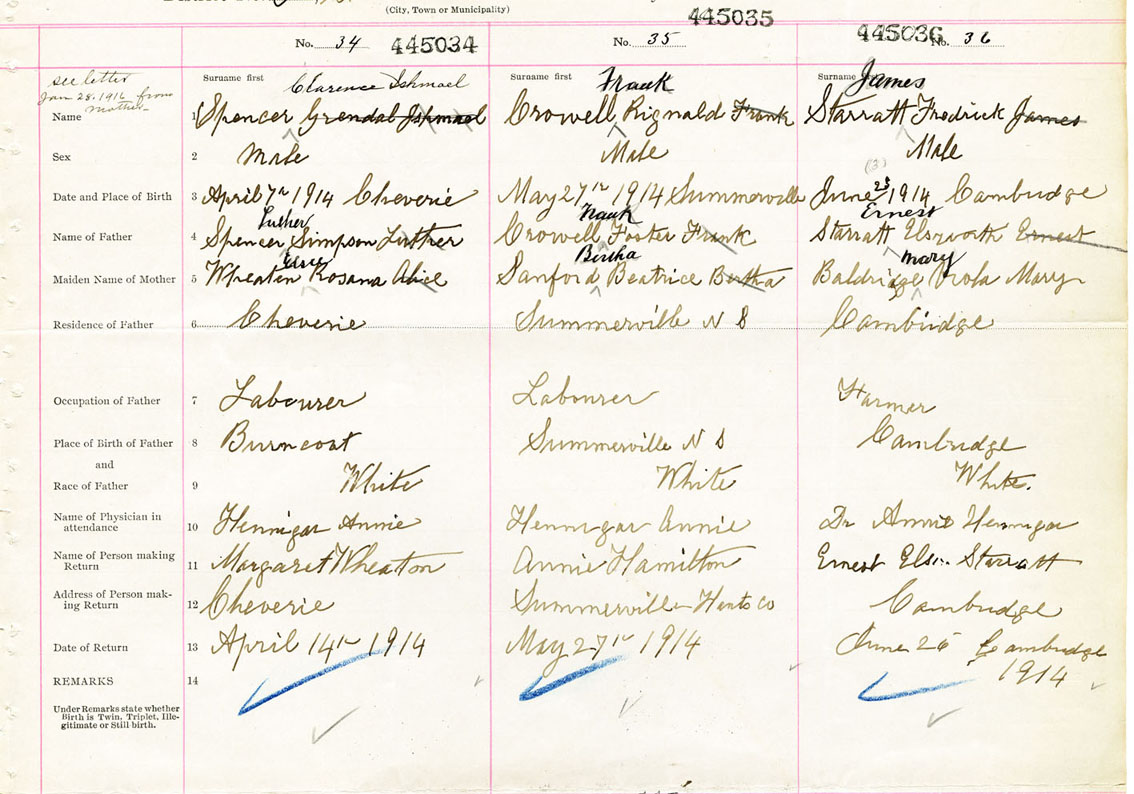 (City, Town or Municipality)
No. 34 445034 No. 35 445035 No. 36 445036
see letter
Jan 28, 1916 from
Mother
Surname first Clarence Ishmael Surname first Frank Surname first James
Name 1 Spencer Grendal Ishmael Crowell Rignald Frank Starratt Fredrick James
Sex 2 Male Male Male
(3)
Date and Place of Birth 3 April 7th 1914 Cheverie May 27th 1914 Summerville June 25 1914 Cambridge
Luther Frank Ernest
Name of Father 4 Spencer Simpson Luther Crowell Foster Frank Starratt Elsworth Ernest
Bertha Mary
Maiden Name of Mother 5 Wheaten Rosana Alice Sanford Beatrice Bertha Baldridge Viola Mary
Residence of Father 6 Cheverie Summerville N S Cambridge
Occupation of Father 7 Labourer Labourer Farmer
Place of Birth of Father 8 Burncoat Summerville N S Cambridge
and
Race of Father 9 White White White.
Name of Physician in
attendance 10 Hennigar Annie Hennigar Annie Dr Annie Hennigar
Name of Person making
Return 11 Margaret Wheaton Annie Hamilton Ernest Starratt
Address of Person mak-
ing Return 12 Cheverie Summerville Hants Co Cambridge
Date of Return 13 April 14th 1914 May 27th 1914 June 25 Cambridge
1914
REMARKS 14
Under Remarks state whether
Birth is Twin, Triplet, Ille-
gitimate or Still birth.